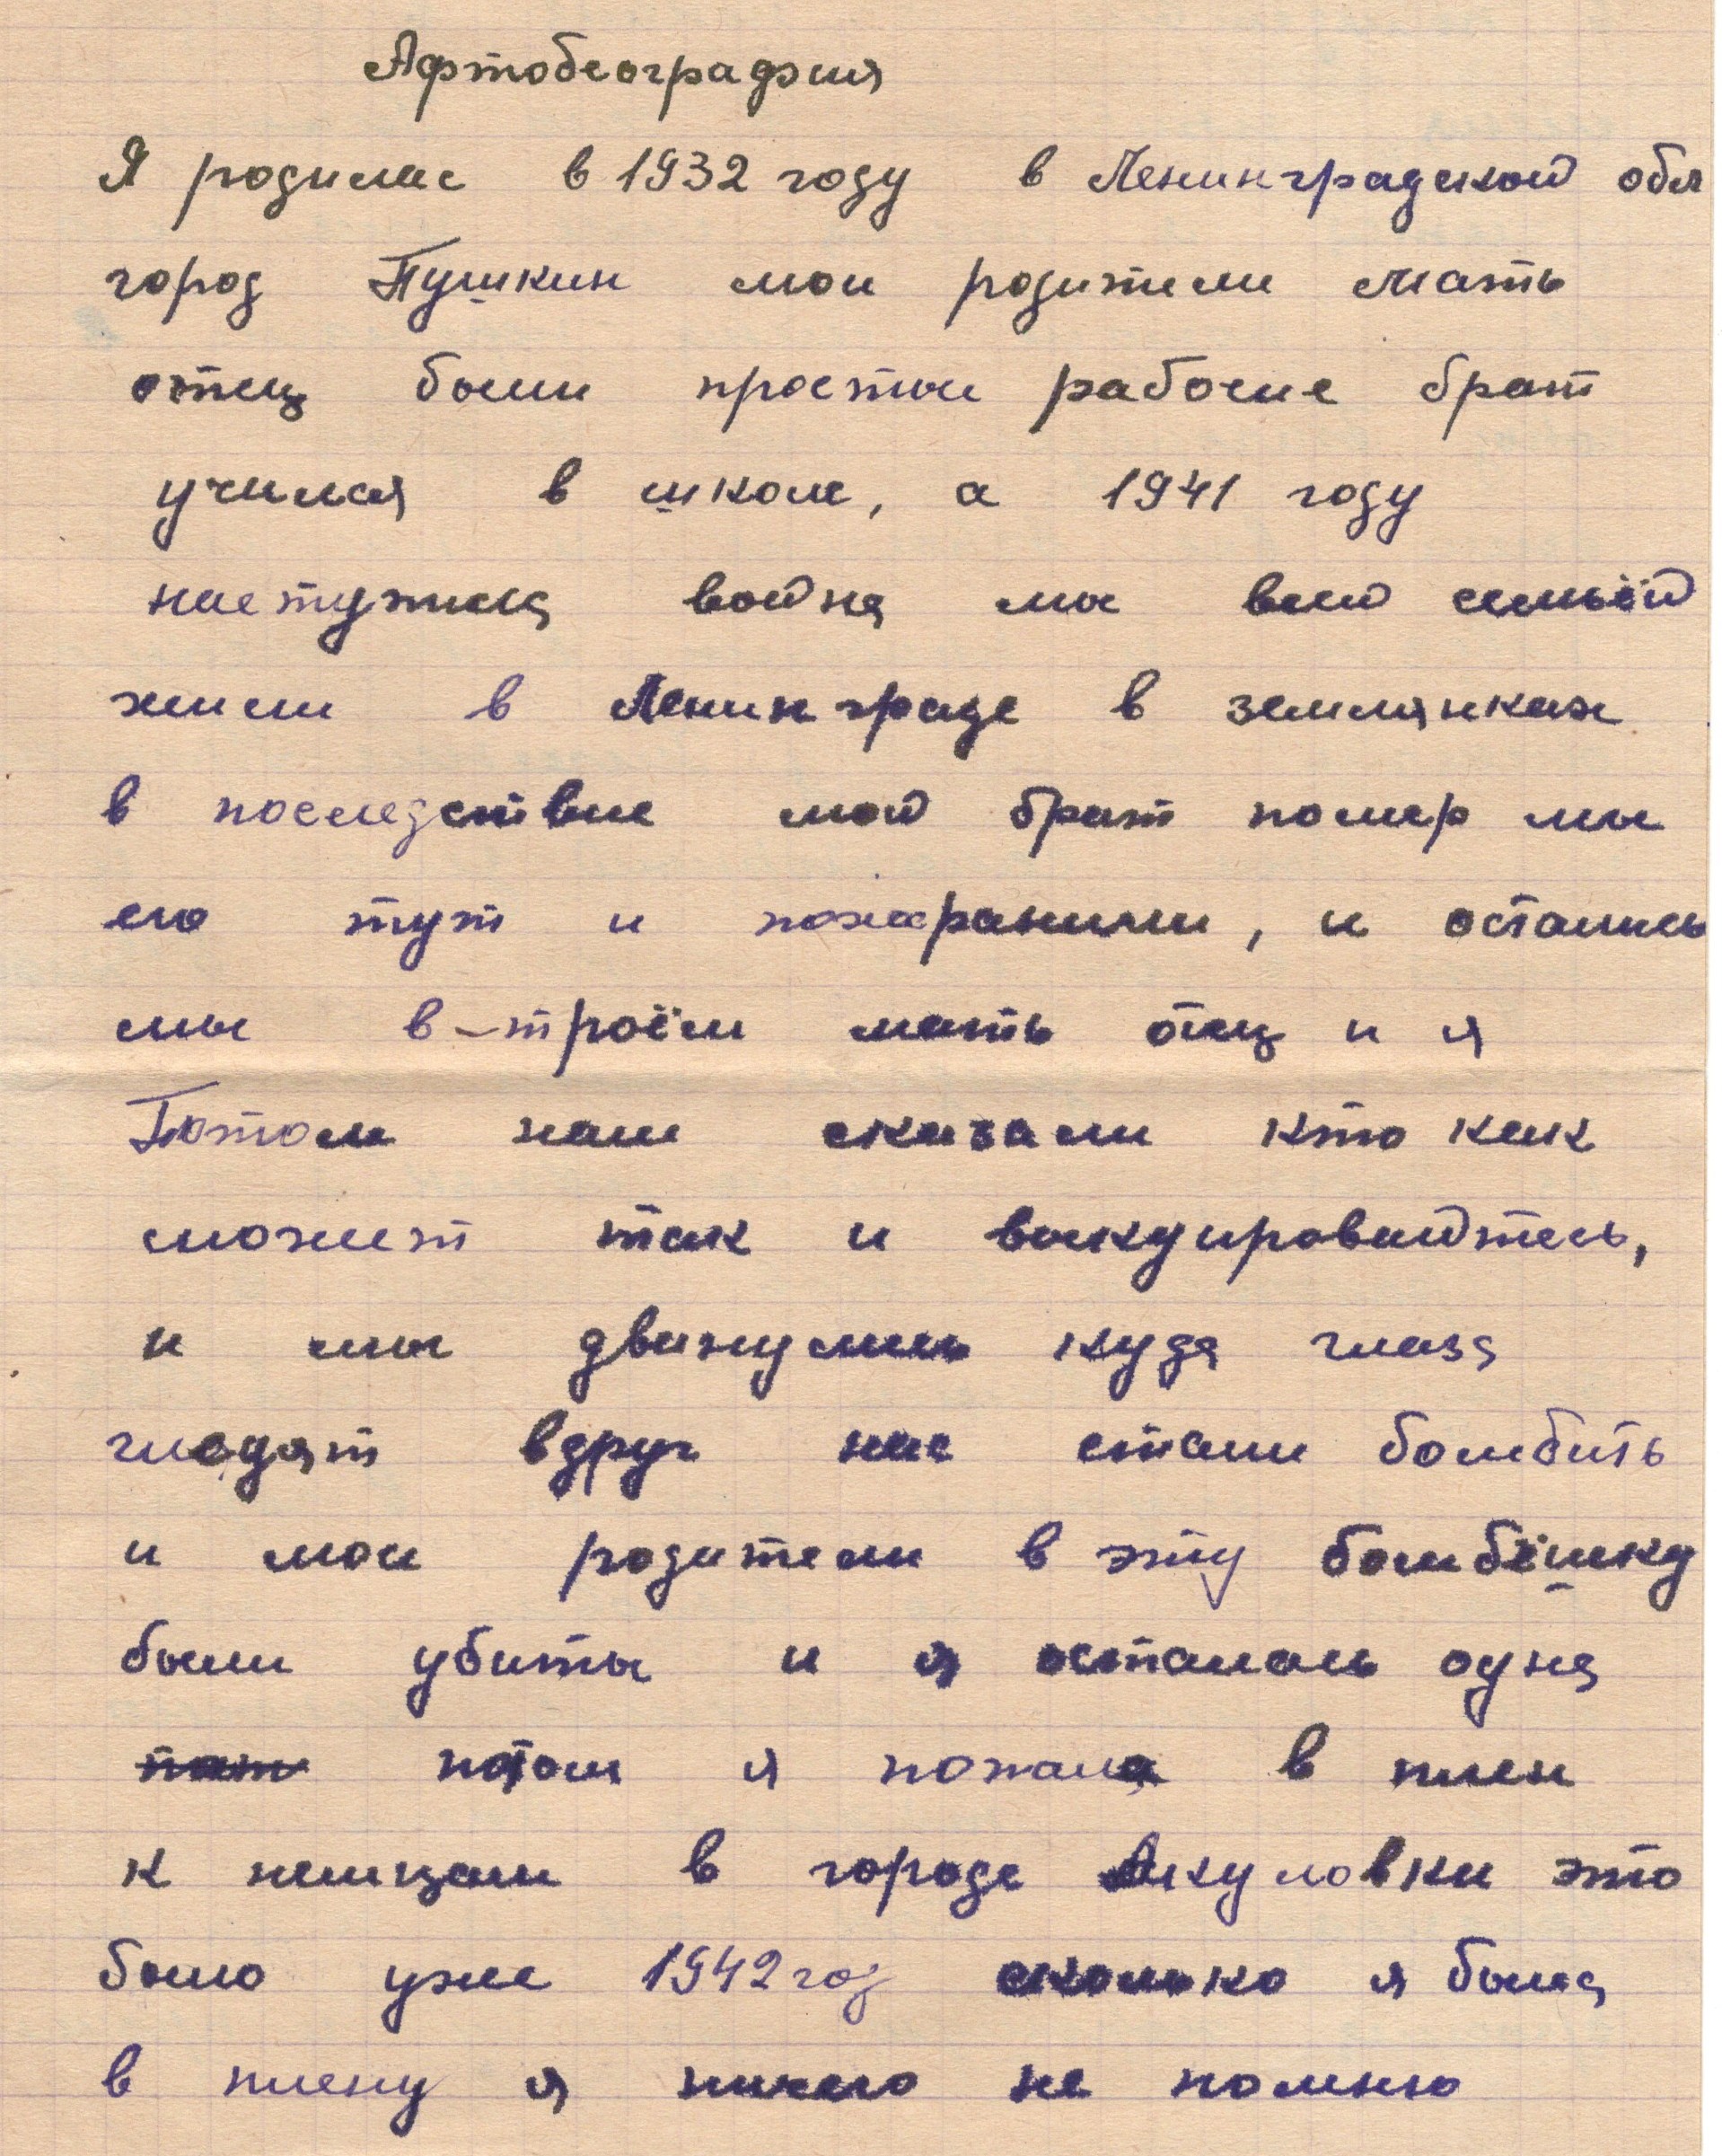 Афтобеография
Я родилас в 1932 году в Ленинградской обл
город Пушкин мои родители мать
отец были простыи рабочие брат
учился в школе, а 1941 году
наступила война мы всей семьёй
жили в Ленинграде в землянках
в последствие мой брат помер мы
его тут и похаранили, и остались
мы в-троём мать отец и я
Потом нам сказали кто как
может так и выкуировайтесь,
и мы двинулись куда глаза
глядят вдруг нас стали бомбить
и мои родители в эту бомбёшку
были убиты и я осталась одна
потом я попала в плен
к немцам в городе Акуловки это
было уже 1942 год сколько я была
в плену я ничего не помню